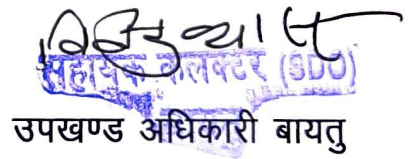 सहायक कलक्टर (SDO)
उपखण्ड अधिकारी बायतु